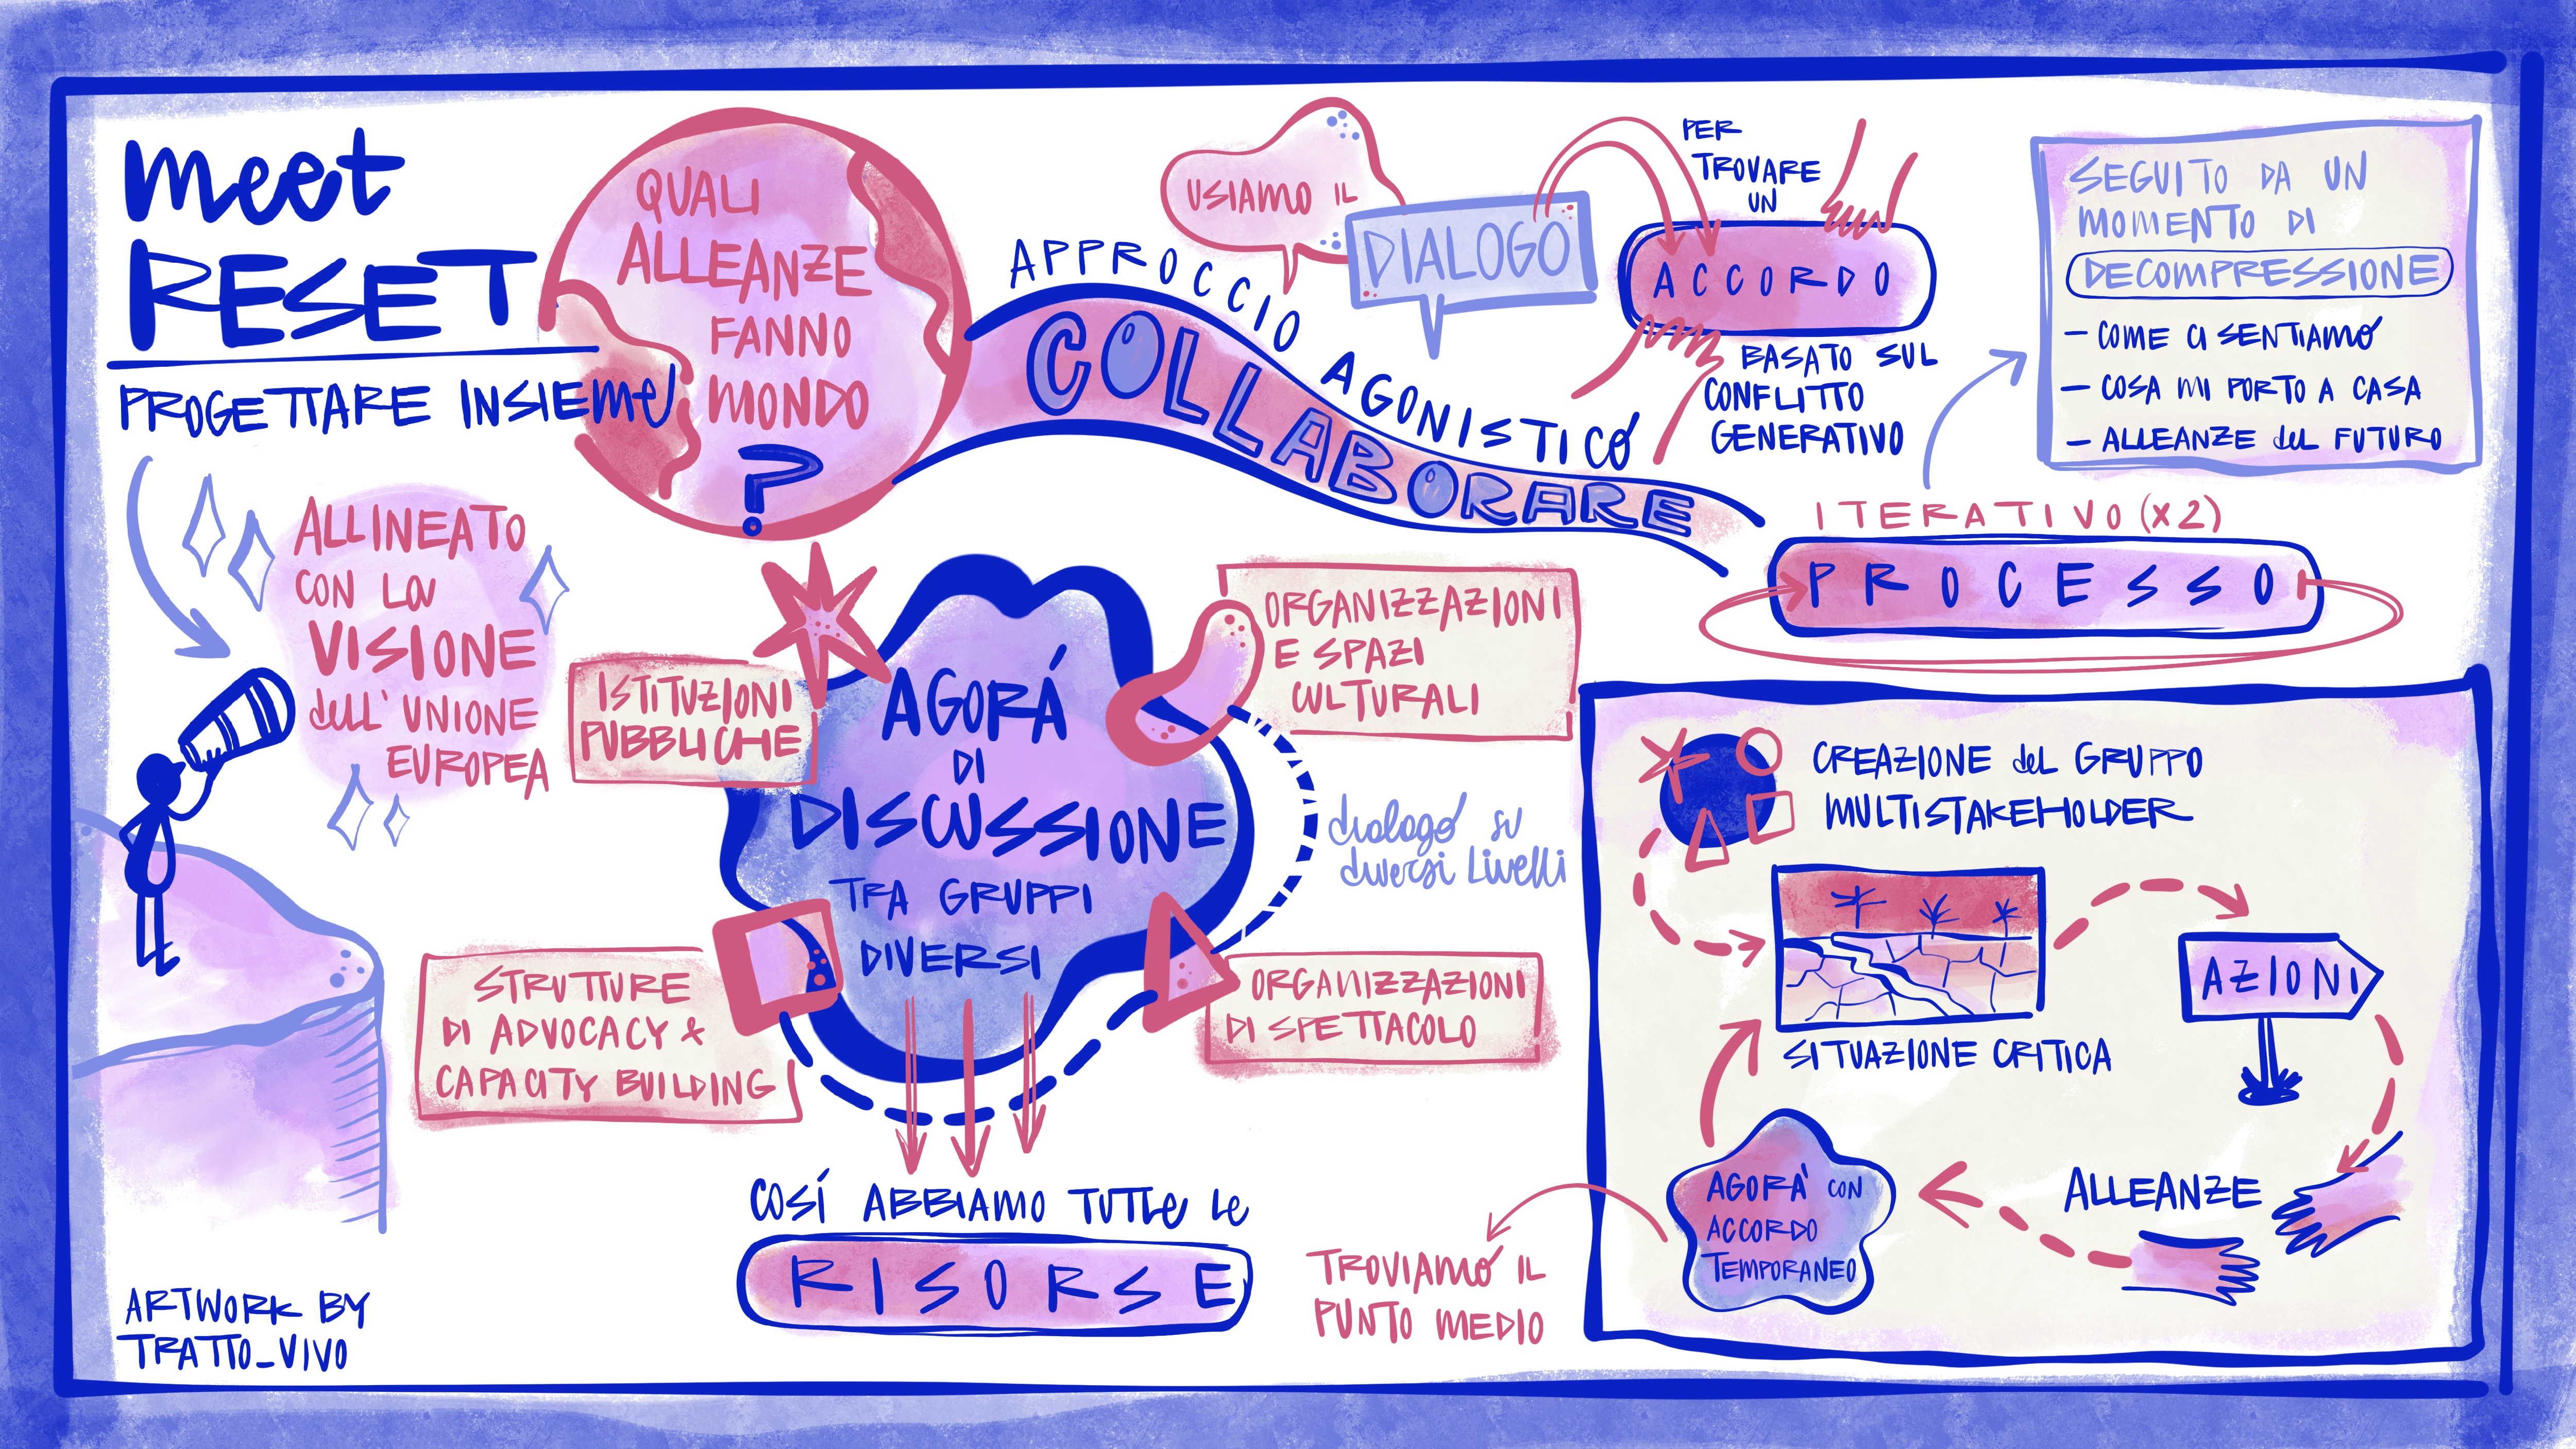 meet
RESET
PROGETTARE INSIEME
QUALI
ALLEANZE
FANNO
MONDO
?
ALLINEATO
CON LA
VISIONE
dell' UNIONE
EUROPEA
APPROCCIO AGONISTICO
COLLABORARE
USIAMO IL
DIALOGO
PER
TROVARE
UN
ACCORDO
BASATO SUL
CONFLITTO
GENERATIVO
SEGUITO DA UN
MOMENTO DI
DECOMPRESSIONE
- COME CI SENTIAMO
- COSA MI PORTO A CASA
- ALLEANZE del FUTURO
ITERATIVO (X2)
PROCESSO
AGORÁ
DI
DISCUSSIONE
TRA GRUPPI
DIVERSI
ISTITUZIONI
PUBBLICHE
ORGANIZZAZIONI
E SPAZI
CULTURALI
dialogo su
diversi livelli
STRUTTURE
DI ADVOCACY &
CAPACITY BUILDING
ORGANIZZAZIONI
DI SPETTACOLO
COSÍ ABBIAMO TUTTE LE
RISORSE
CREAZIONE del GRUPPO
MULTISTAKEHOLDER
SITUAZIONE CRITICA
AZIONI
ALLEANZE
AGORÀ CON
ACCORDO
TEMPORANEO
TROVIAMO IL
PUNTO MEDIO
ARTWORK BY
TRATTO_VIVO